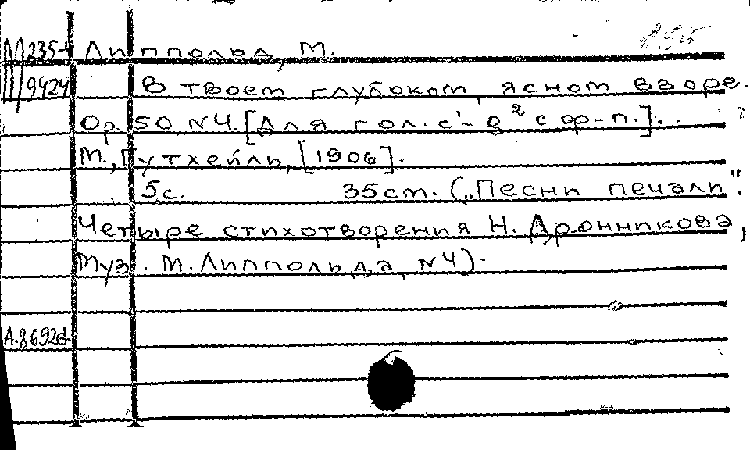 М 235-4 Липпольд, М.
9424 В твоем глубоком, ясном взоре.
Op. 50, №4. [Для гол. c¹-g² с ф-п.].
М., Гутхейль, [1906].
5с. 35cm. („Песни печали".
Четыре стихотворения Н. Дронникова,
Муз. М. Липпольда, №4).
А.8692d